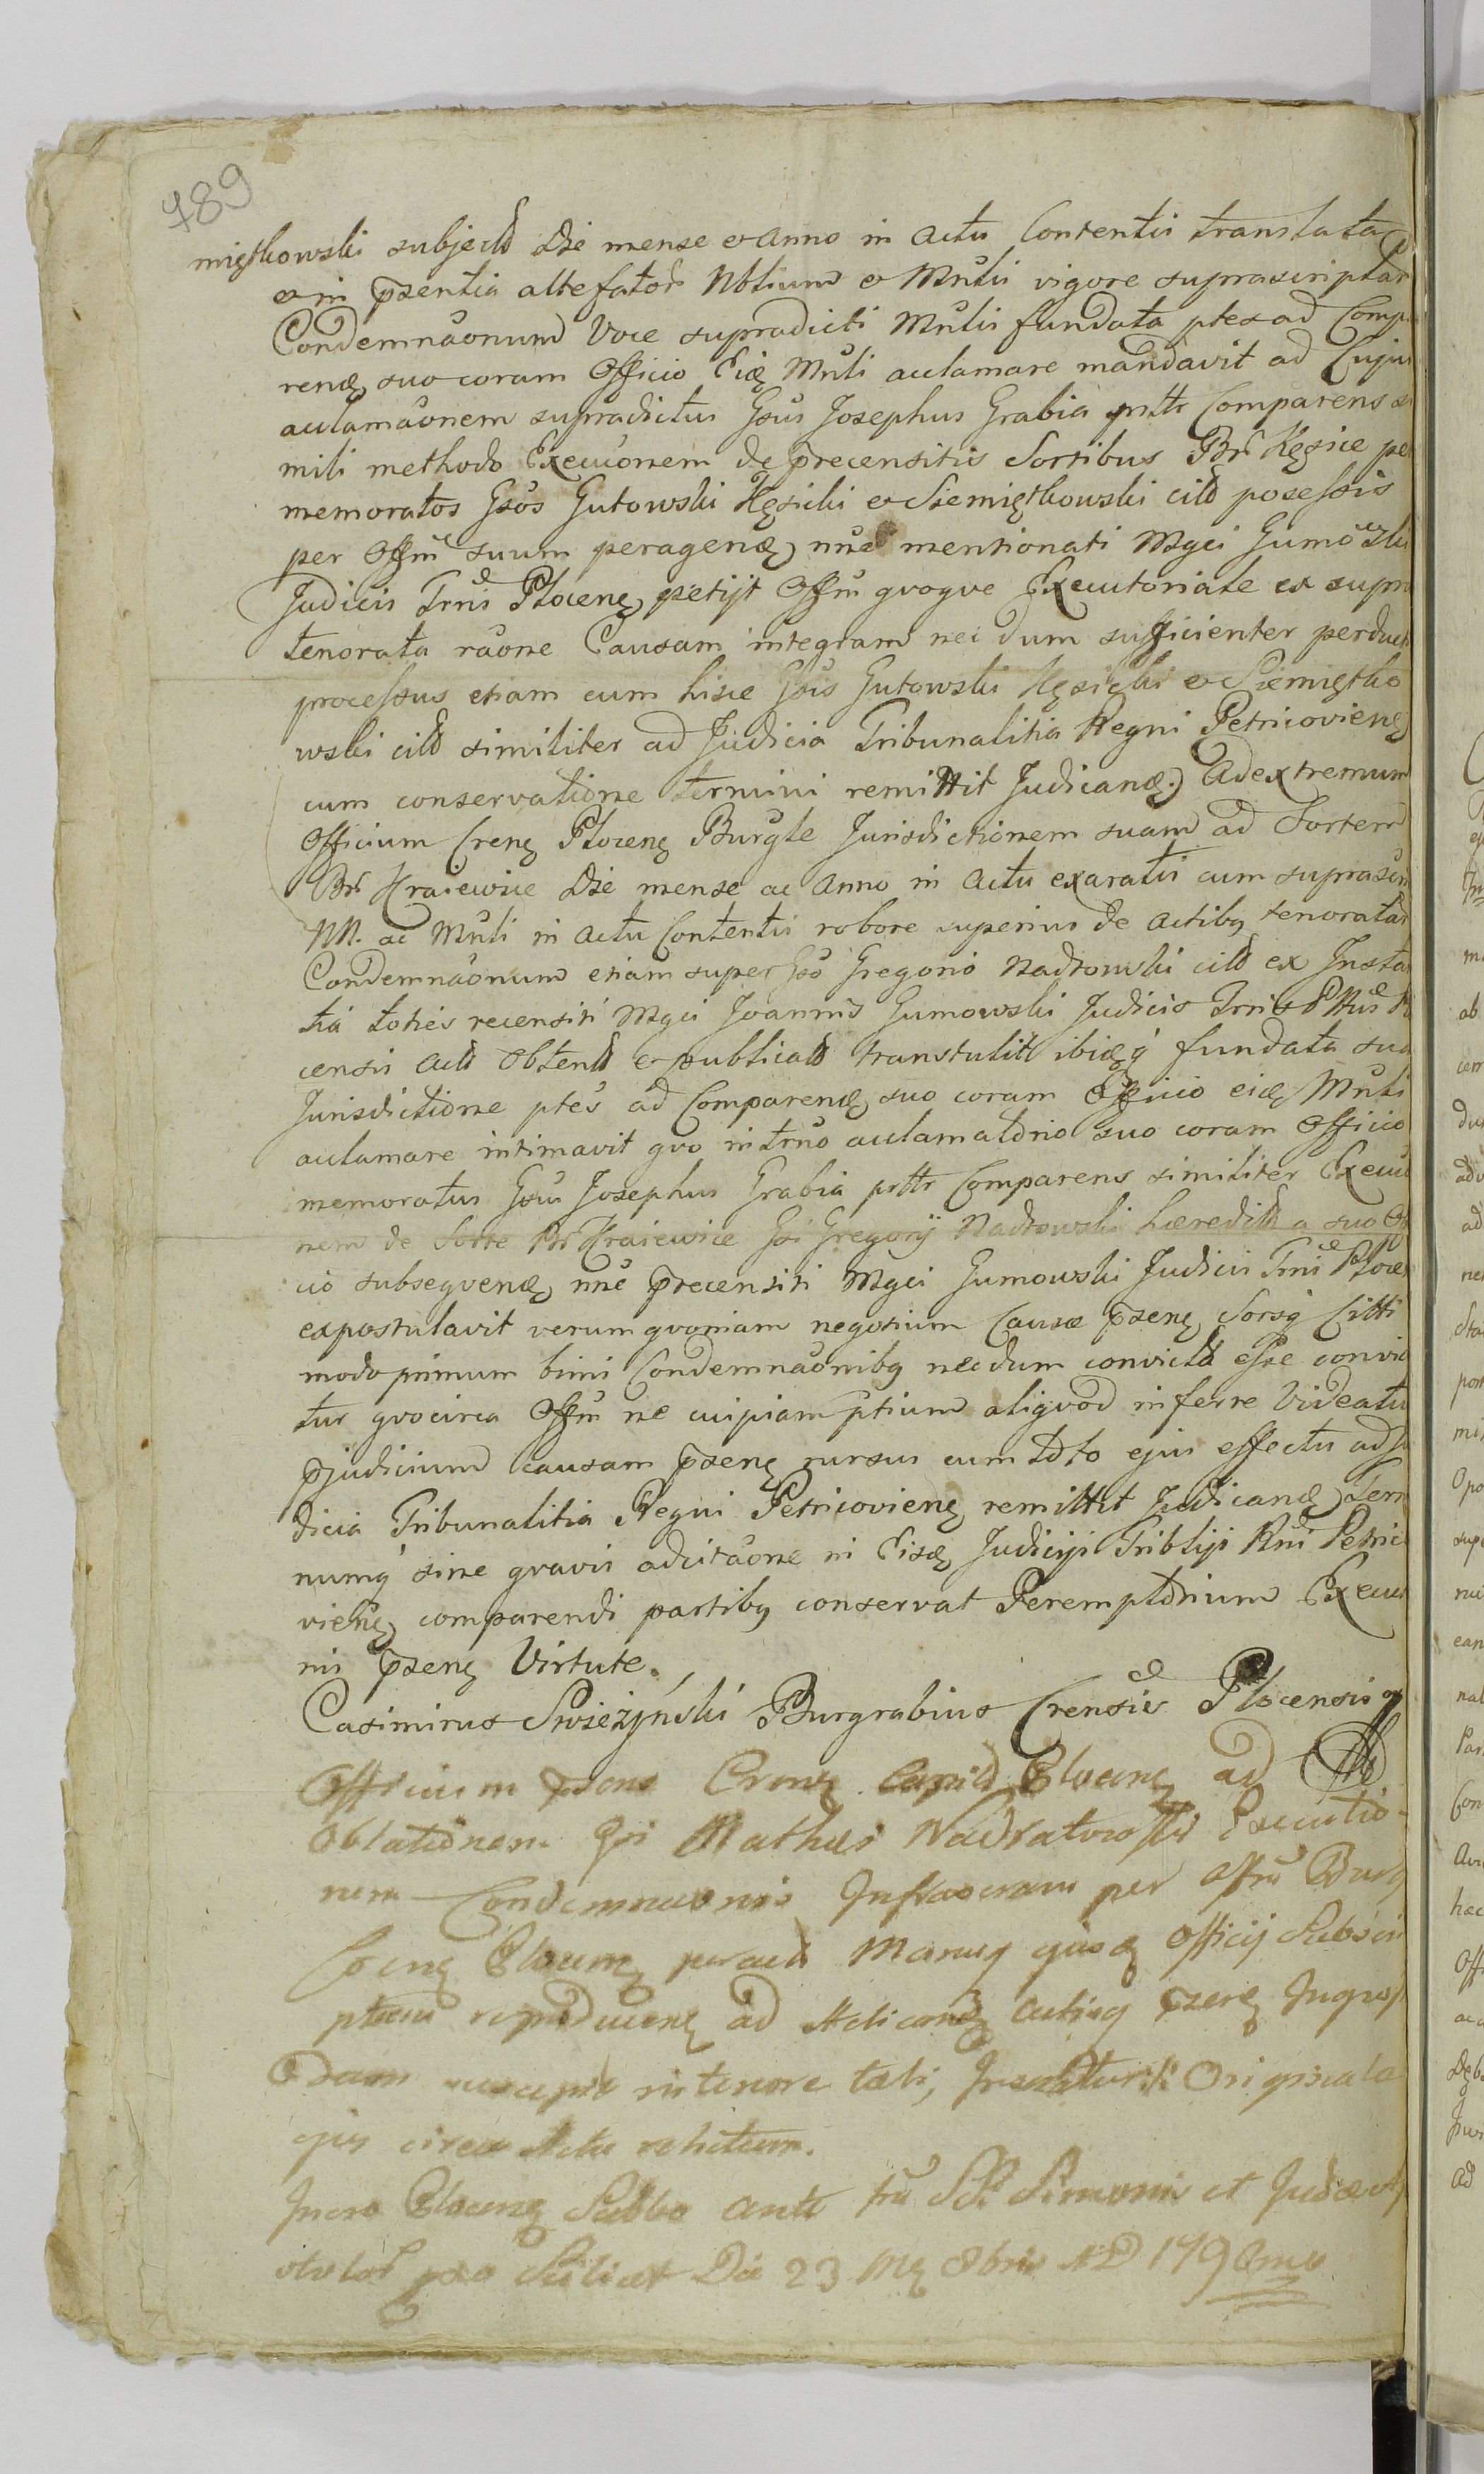 789
miętkowski subject Die mense et Anno in actu Contentis translata
et in pzentia attefator Nbtium et Mnlii vigore suprascriptar
Condemnaonum Voce supradicti Mnlis fundata ptes ad Comp
renę suo coram Officio Eię Mnli acclamare mandavit ad Cujus
acclamaonem supradictus Gsus Josephus Grabia prttr Comparens si
mili methodo Execuonem de precensitis Sortibus Br Kęsice per
memoratos Gsos Gutowski Kęsicki et Siemiętkowski cild posessis
per Offm suum peragenę nne mentionati Mgci Gumowski
Judicis Trris Plocenę petijt Offm quoque Executoriale ex supra
tenorata raone Causam integram nec dum sufficienter perduct
processus etiam cum hisce Gsis Gutowski Kęsicki et Siemiętko
wski cild similiter ad Judicia Tribunalitia Regni Petricovienę
cum conservatione termini remittit Judicanę. Ad extremum
Officium Crenę Plocenę Burgle Jurisdictionem suam ad Sortem
Br Kraiewice Die mense ac Anno in Actu exaratis cum suprascri
NN. ac Mnli in actu Contentis robore superius de actibg tenoratar
Condemnaonum etiam super Gso Gregorio Nadrowski cild ex Insta
tia toties recensiti Mgci Joannis Gumowski Judicis Trris Pttus Plo
censis actd obtend et publicatd transtulit ibiqę fundata sua
Jurisdictione ptes ad Comparenę suo coram Officio eię Mnli
acclamare intimavit quo in trno acclamatorio suo coram Officio
memoratus Gsus Josephus Grabia prttr Comparens similiter Execuo
nem de Sorte Br Kraiewice Gsi Gregorij Nadrowski hæreditd a suo Offi
cio subsequenę nne precensiti Mgci Gumowski Judicis Trris Ploce
expostulavit verum quoniam negotium Causæ pzenę Sorsq Citti
modo primum bini Condemnaonibg necdum convictd esse convin
tur quocirca Offm ne cuipiam ptium aliquod inferre Videatur
pjudicium causam pzenę rursus cum toto ejus effectu ad Ju
dicia Tribunalitia Regni Petricovienę remittit Judicanę Term
numq sine gravis adcitaone in Eisę Judicijs Triblijs Rni Petrico
vienę comparendi partibg conservat Peremptorium Execuo
nis pzenę Virtute.
Casimirus Swieżyński Burgrabius Crensis Plocensis
Officium pzens Crenę Capitd Plocenę ad
Oblationem Gsi Mathei Nadratowski Executio
nem Condemnaonis Infrascram per Offm Burg
Crenę Plocenę peractd Manug ejusę Officij Subscri
ptam reproducenę ad Acticandę Actisq pzenę Ingross
andam suscepit in tenore tali, Inseratur /: Originale
ejus circa Acta relictum.
In cro Plocenę Sabbo ante fm SS Simonis et Judæ Ap
stolor pxo Scilicet Die 23 Mę 8bris AD 179